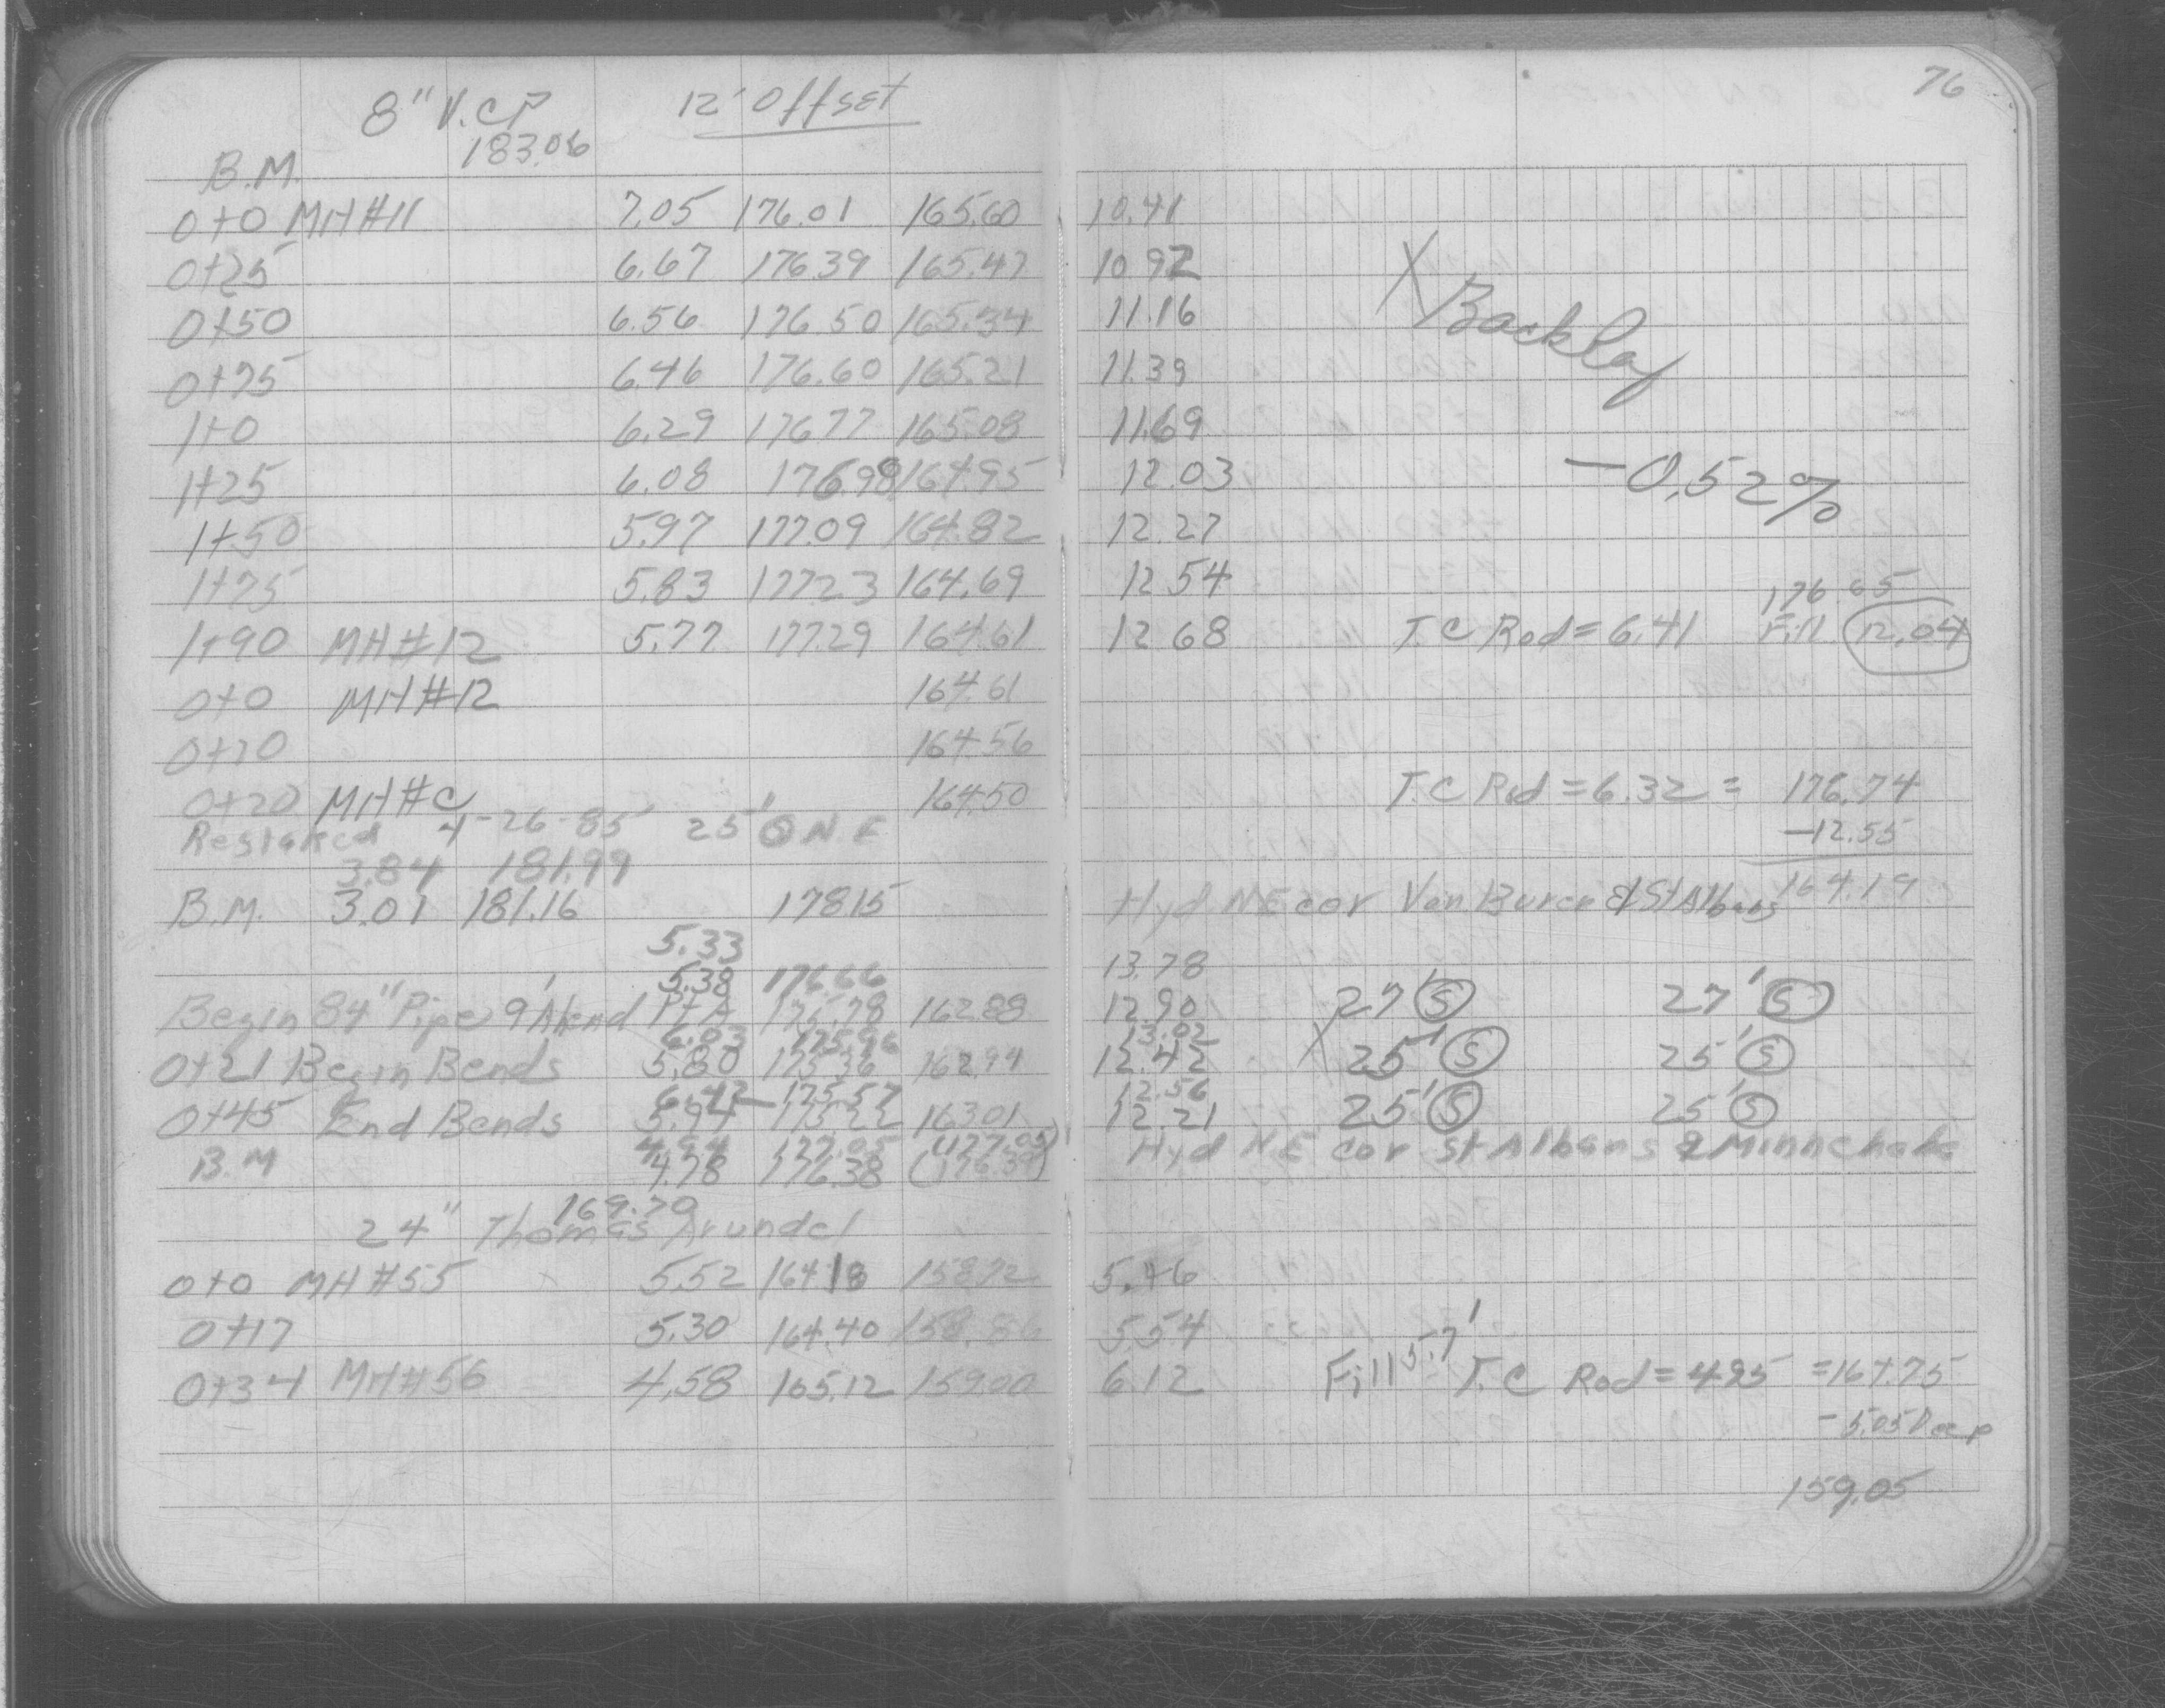 76
8" V.C.P 12' Offset
183.06
B.M.
0+0 MH#11 7.05 176.01 165.60 10.41
0+25 6.67 176.39 165.47 10.92
0+50 6.56 176.50 165.34 11.16
X Backlay
0+75 6.46 176.60 165.21 11.39
1+0 6.29 176.77 165.08 11.69
1+25 6.08 176.98 164.95 12.03 -0.52%
1+50 5.97 177.09 164.82 12.27
1+75 5.83 177.23 164.69 12.54
176.65
1+90 MH#12 5.77 177.29 164.61 12.68 T.C Rod = 6.41 Fill 12.04
0+0 MH#12 164.61
0+10 164.56
0+20 MH#C 164.50 T.C Rod = 6.32 = 176.74
Restaked 4-26-85 25' O N.E -12.55
3.84 181.99
B.M. 3.01 181.16 178.15 Hyd N.E cor Van Buren & St Albans 164.19
5.33
5.38 176.66 13.78
Begin 84" Pipe 9' Ahead Pt A 176.78 162.88 12.90 27' S 27' S
6.03 175.96 13.02
0+21 Begin Bends 5.80 175.36 162.94 12.42 X 25' S 25' S
175.57 12.56
0+45 End Bends 5.94 175.22 163.01 12.21 25' S 25' S
177.05 (177.05)
B.M 4.78 176.38 (176.39) Hyd N.E cor St Albans & Minnehaha
169.70
24" Thomas Arundel
0+0 MH#55 5.52 164.18 158.72 5.46
0+17 5.30 164.40 158.86 5.54
0+34 MH#56 4.58 165.12 159.00 6.12 Fill 5.7' T.C Rod = 4.95 = 164.75
- 5.05 Deep
159.05